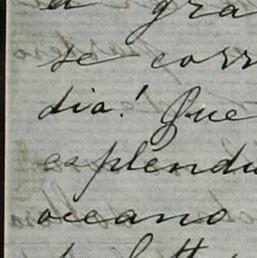 a gra
se corr
dia! Que
esplendi
oceano